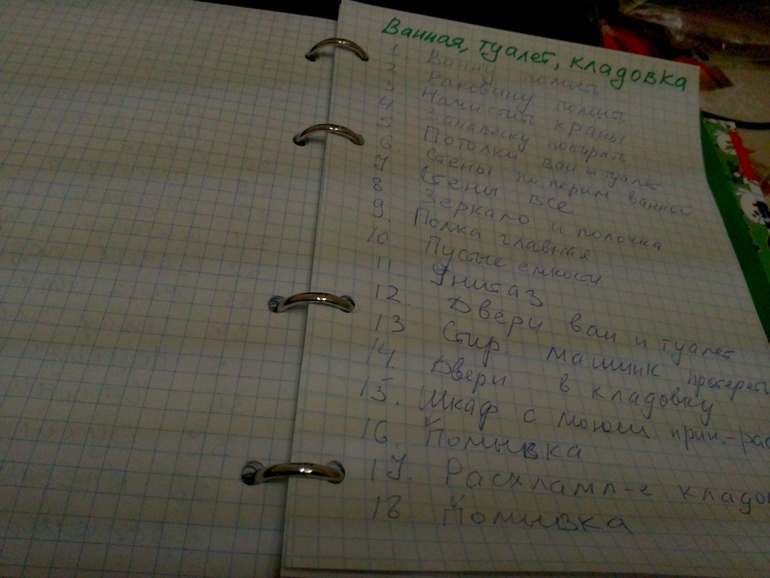 Ванная, туалет, кладовка
1. Ванну помыть
2. Раковину помыть
3. Начистить краны
4. Занавеску постирать
5. Потолки ван и туалет
6. Стены по перим ванной
7. Стены все
8. Зеркало и полочка
9. Полка главная
10. Пустые емкости
11. Унитаз
12. Двери ван и туалет
13 Стир. машинк протереть
14. Двери в кладовку
15. Шкаф с моющ прин.-рас
16. Помывка
17. Расхламл-е кладо
18. Помывка